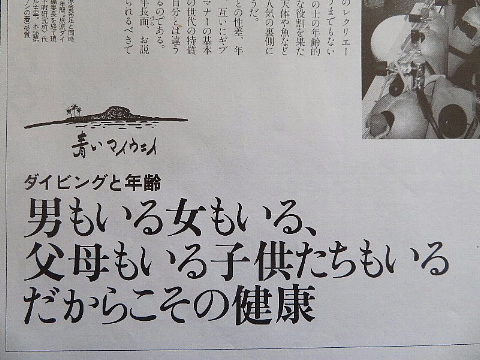 のレクリエー
うまでもない
の上の年齢的
な役割を果た
天体や魚など
人気の裏側に
うだ。
との性差、年
互いにギブ
マナーの基本
の世代の特質
自分とは違う
るのである。
平良面、お説
られるべきで
青いマイウェイ
ダイビングと年齢
男もいる女もいる、
父母もいる子供たちもいる
だからこその健康